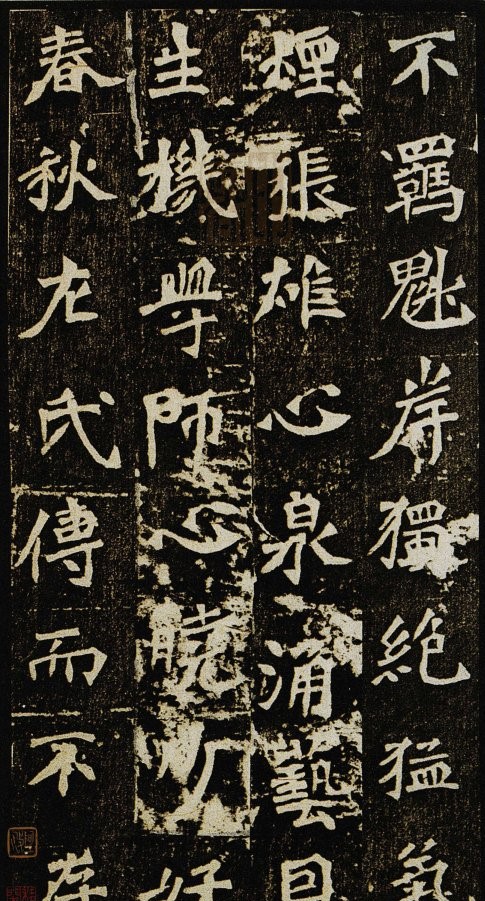 不羈魁岸獨絶猛氣
煙張雄心泉涌藝
生機學師心曉少好
春秋左氏傳而不存